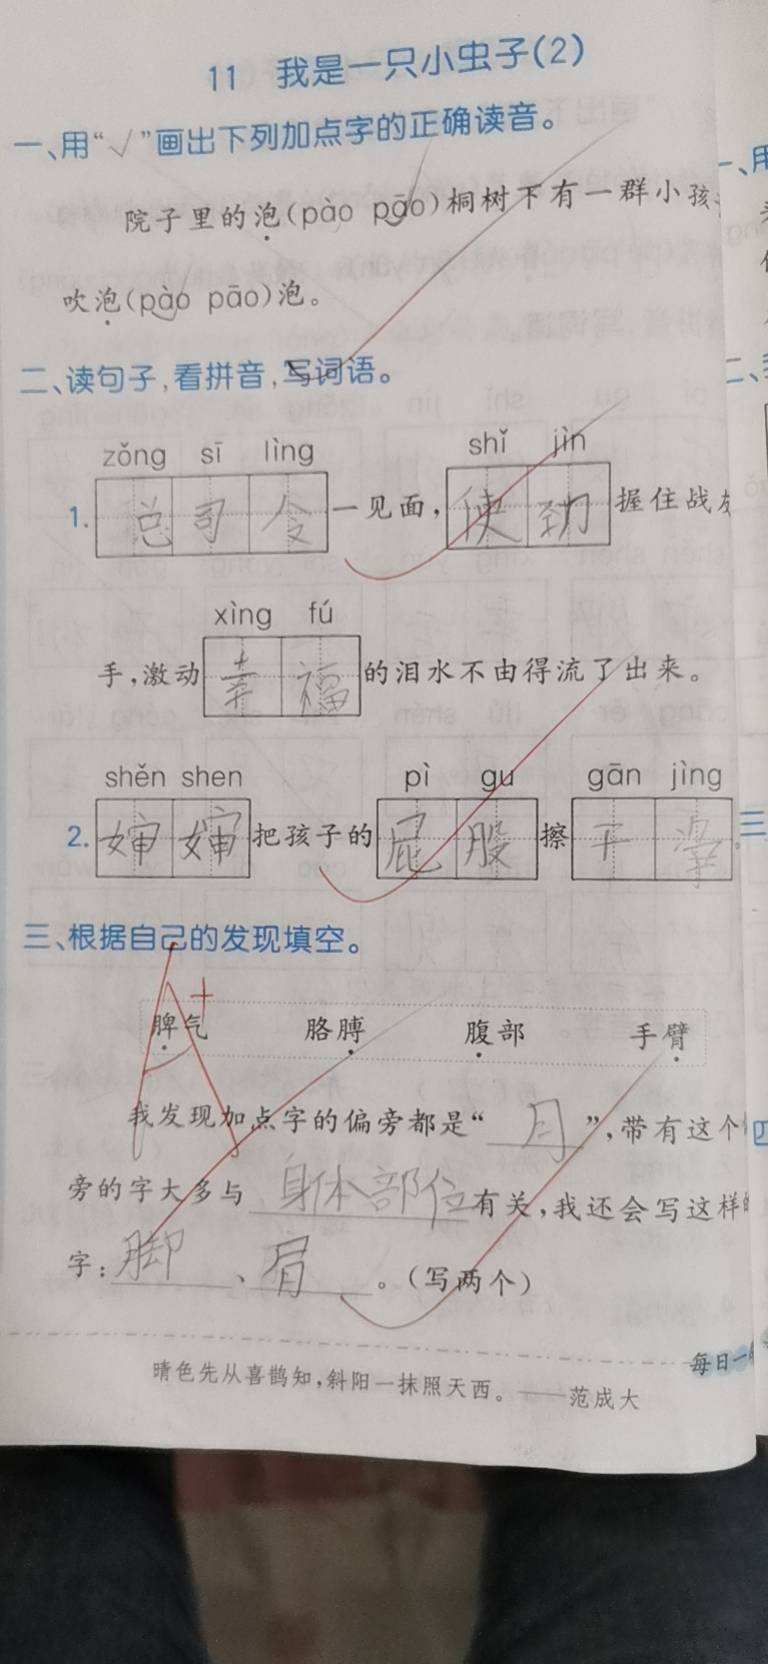 11 我是一只小虫子(2)
一、用“√”画出下列加点字的正确读音。
院子里的泡(pào pāo)桐树下有一群小孩
吹泡(pào pāo)泡。
二、读句子,看拼音,写词语。
zǒng sī lìng shǐ jìn
1. 总司令一见面,使劲握住战友
xìng fú
手,激动幸福的泪水不由得流了出来。
shěn shen pì gu gān jìng
2. 婶婶把孩子的屁股擦干净。
三、根据自己的发现填空。
A+
脾气 胳膊 腹部 手臂
我发现加点字的偏旁都是“月”,带有这个
旁的字大多与身体部位有关,我还会写这样的
字:脚、肩。(写两个)
每日一
晴色先从喜鹊知,斜阳一抹照天西。——范成大
一、用
二、
三
四